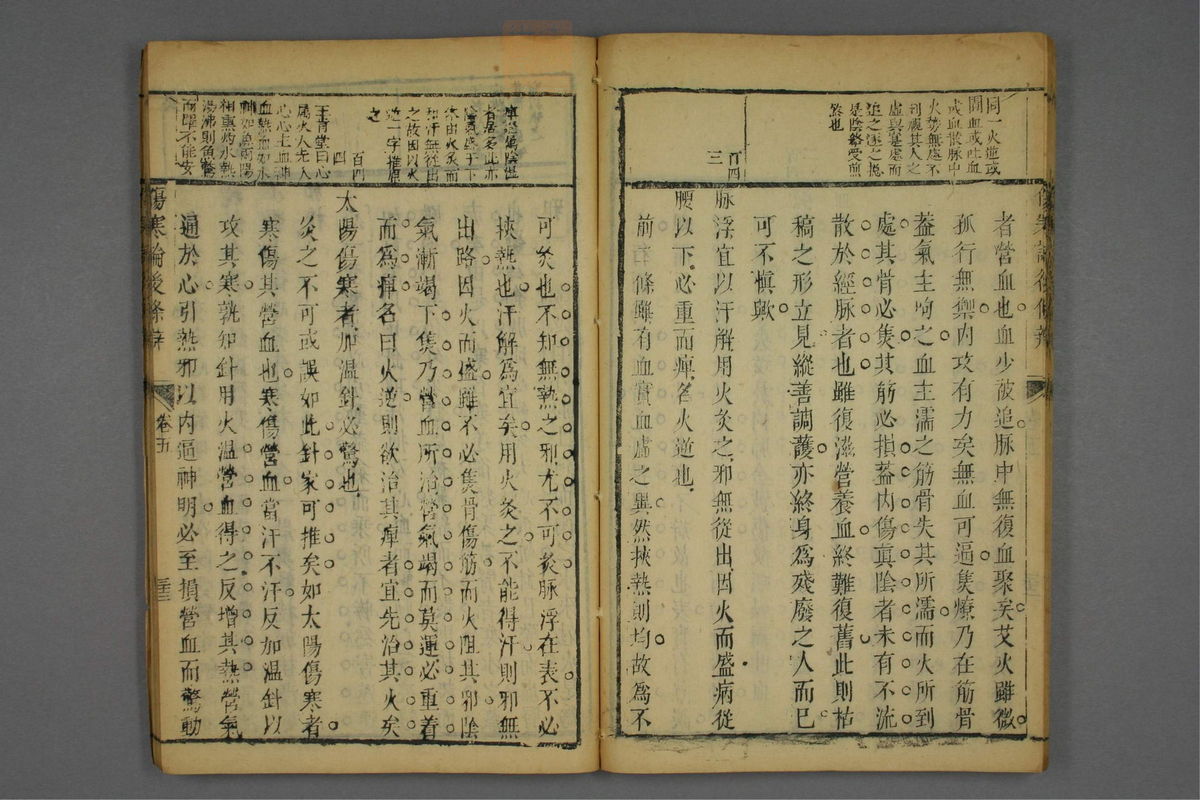 同一火逆或
圊血或吐血
或血散脉中
火勢無處不
到視其人之
虛與寔處而
追之逐之總
是陰絡受煎
熬也
百四
三
者營血也血少被追脉中無復血聚矣艾火雖微
孤行無禦内攻有力矣無血可逼焦燎乃在筋骨
蓋氣主呴之血主濡之筋骨失其所濡而火所到
處其骨必焦其筋必損蓋内傷真陰者未有不流
散於經脉者也雖復滋營養血終難復舊此則枯
稿之形立見縱善調護亦終身爲殘廢之人而已
可不愼歟
脉浮宜以汗解用火灸之邪無從出因火而盛病從
腰以下必重而痺名火逆也
前右條雖有血實血虛之異然挾熱則均故爲不
傷寒論後條辨
者居多此亦
陰氣盛于下
祭由火灸而
却汗無從出
之故因以火
逆一字推原
之
百四
四
王肯堂曰心
屬火人先入
心心主血神
血熱血如水
神如魚兩陽
相熏灼水熱
湯沸則魚驚
而躍不能安
可灸也不知無熱之邪尤不可灸脉浮在表不必
挾熱也汗解爲宜矣用火灸之不能得汗則邪無
出路因火而盛雖不必焦骨傷筋而火阻其邪陰
氣漸竭下焦乃營血所治營氣竭而莫運必重着
而爲痺名曰火逆則欲治其痺者宜先治其火矣
太陽傷寒者加温針必驚也
灸之不可或誤如此針家可推矣如太陽傷寒者
寒傷其營血也寒傷營血當汗不汗反加温針以
攻其寒孰知針用火温營血得之反增其熱營氣
通於心引熱邪以内逼神明必至損營血而驚動
傷寒論後條辨
卷五